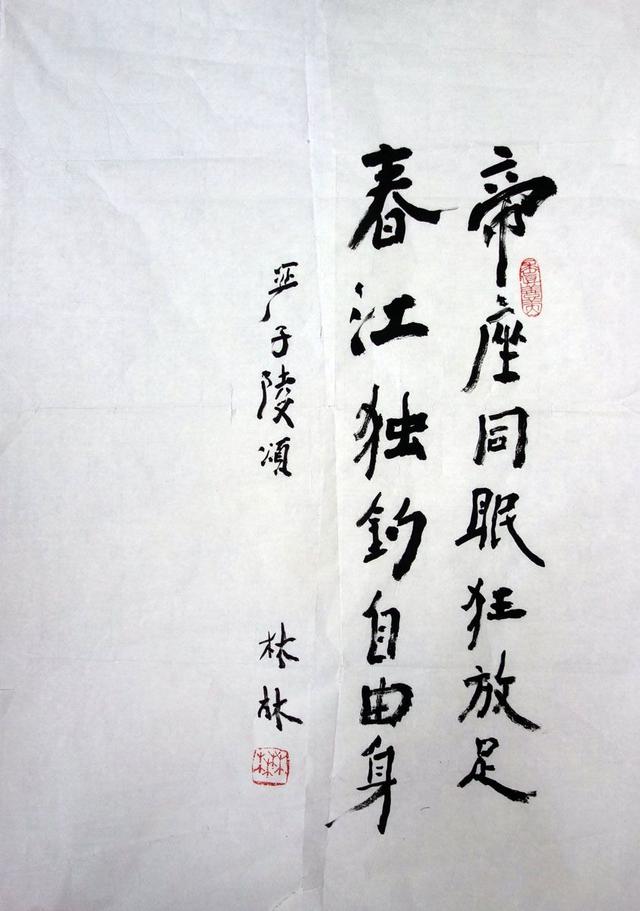 帝座同眠狂放足
春江独钓自由身
严子陵颂
林林
林林